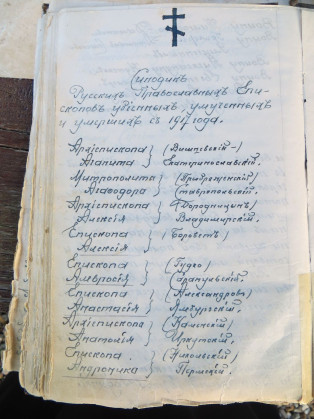 Синодикъ
Русскихъ Православныхъ Епи-
скоповъ убіенныхъ, умученныхъ
и умершихъ съ 1917 года.
Архіепископа } (Вишневскій)
Агапита } Екатеринославскій.
Митрополита } (Преображенскій)
Агафодора } Ставропольскій.
Архіепископа }
Алексія } Владимирскій.
Епископа }
Алексія }
Епископа } (Гудко)
Амвросія } Сарапульскій.
Епископа } (Александровъ)
Анастасія } Ямбургскій.
Архіепископа } (Каменскій)
Анатолія } Иркутскій.
Епископа } (Никольскій)
Андроника } Пермскій.